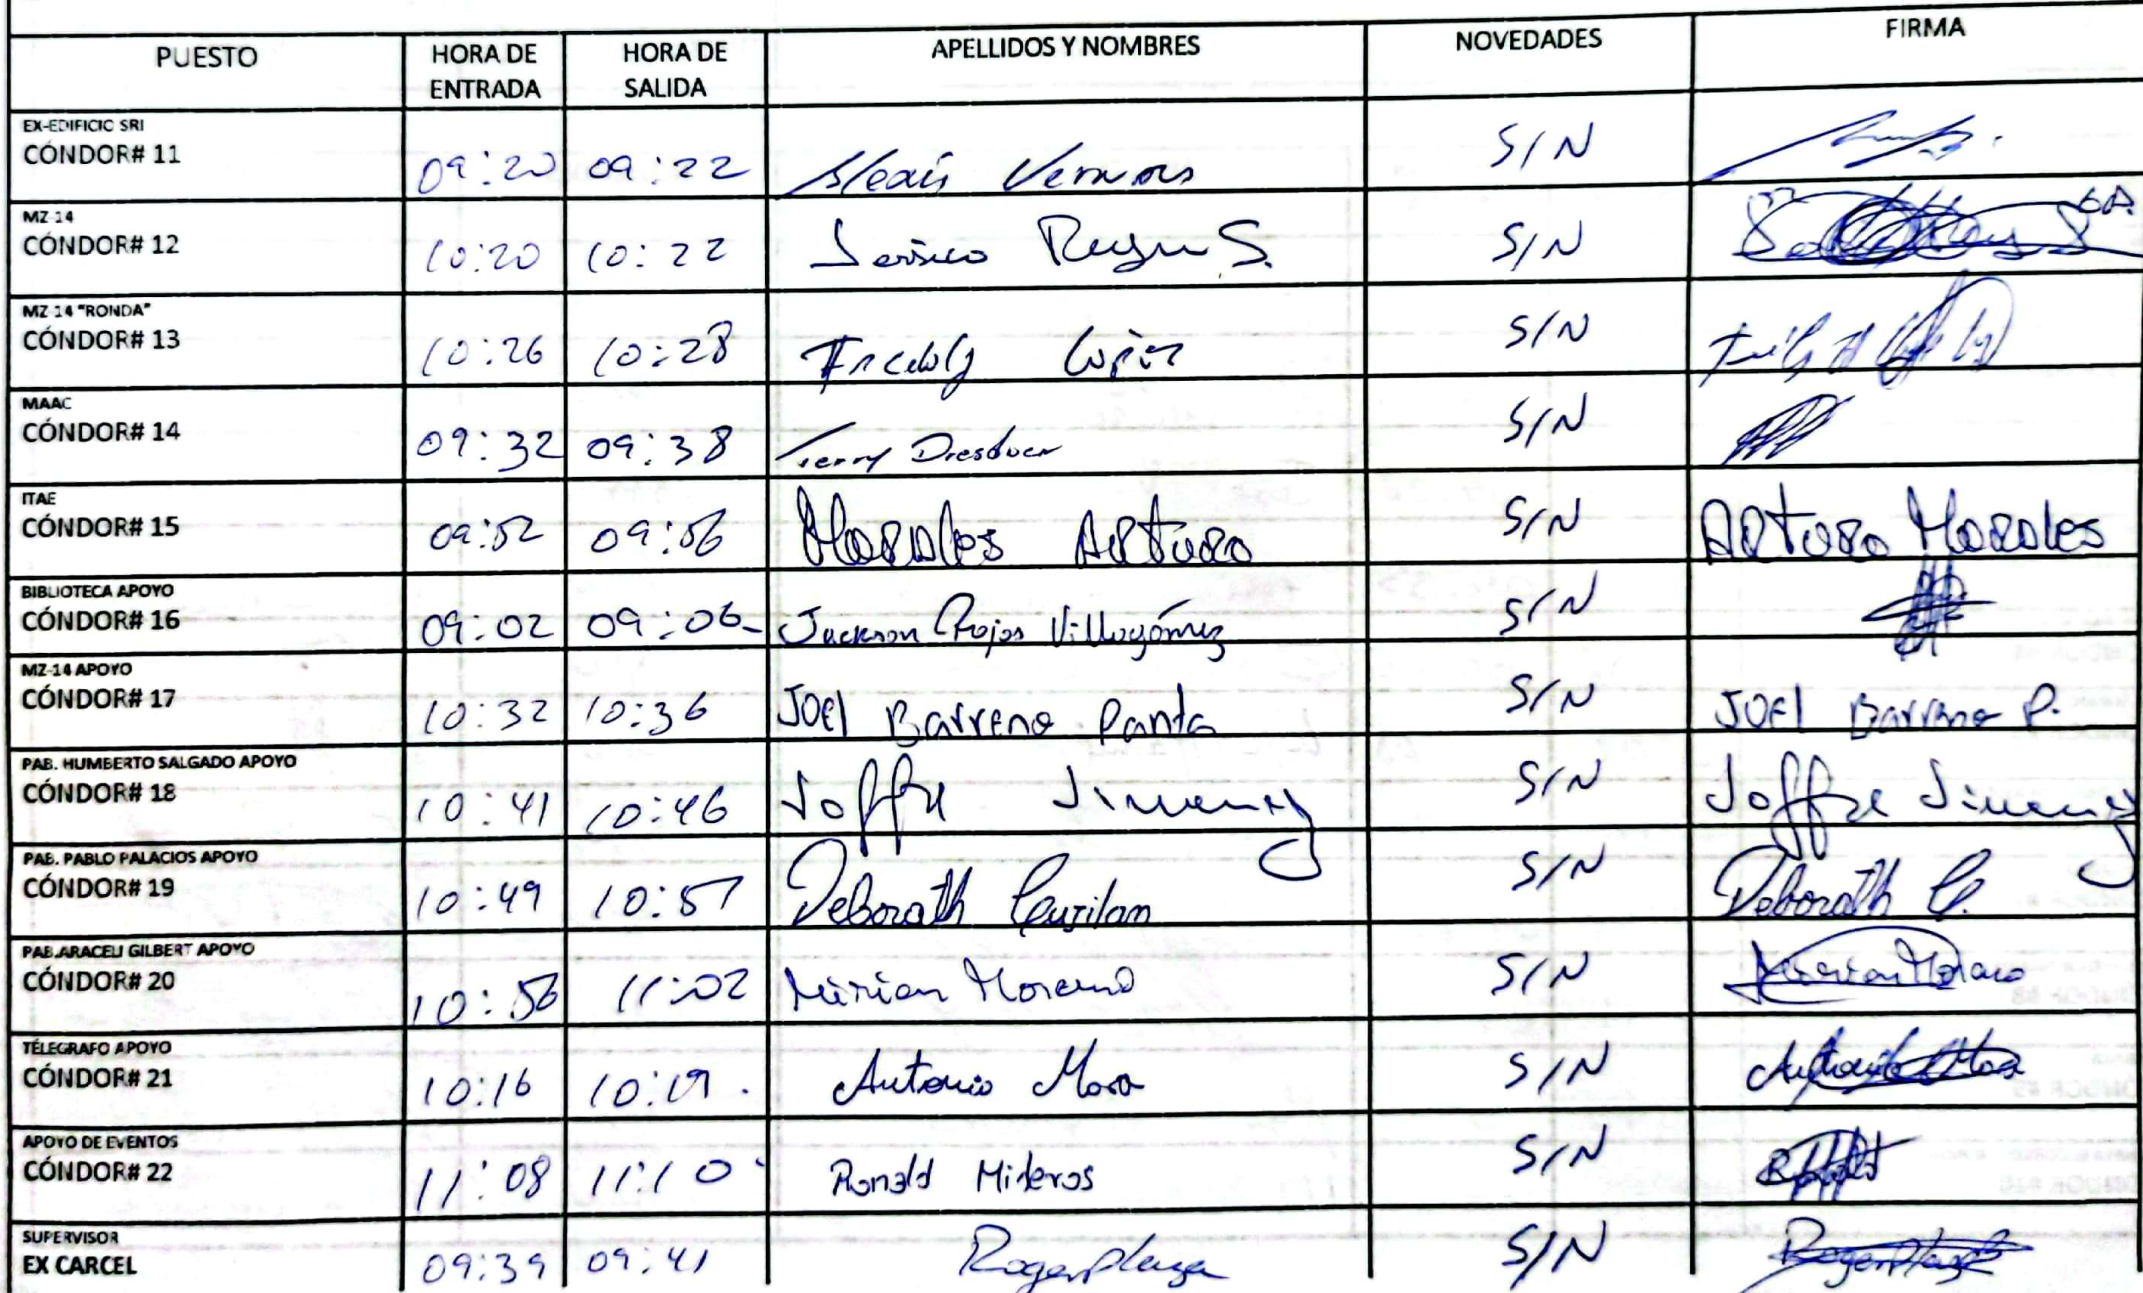 PUESTO HORA DE ENTRADA HORA DE SALIDA APELLIDOS Y NOMBRES NOVEDADES FIRMA
EX-EDIFICIO SRI
CÓNDOR# 11 09:20 09:22 S/N
MZ-14
CÓNDOR# 12 10:20 10:22 S. S/N
MZ-14 "RONDA"
CÓNDOR# 13 10:26 10:28 Freddy López S/N
MAAC
CÓNDOR# 14 09:32 09:38 S/N
ITAE
CÓNDOR# 15 09:52 09:56 Morales Arturo S/N Arturo Morales
BIBLIOTECA APOYO
CÓNDOR# 16 09:02 09:06 Jackson Rojas Villagómez S/N
MZ-14 APOYO
CÓNDOR# 17 10:32 10:36 Joel Barreno Panta S/N Joel Barreno P.
PAB. HUMBERTO SALGADO APOYO
CÓNDOR# 18 10:41 10:46 Joffre Jimenez S/N Joffre Jimenez
PAB. PABLO PALACIOS APOYO
CÓNDOR# 19 10:49 10:57 Deborath S/N Deborath
PAB.ARACELI GILBERT APOYO
CÓNDOR# 20 10:56 11:02 Mirian Moreno S/N
TÉLEGRAFO APOYO
CÓNDOR# 21 10:16 10:19. Antonio Mora S/N Antonio Mora
APOYO DE EVENTOS
CÓNDOR# 22 11:08 11:10 Ronald Mideros S/N
SUPERVISOR
EX CARCEL 09:39 09:41 Roger Plaza S/N Roger Plaza